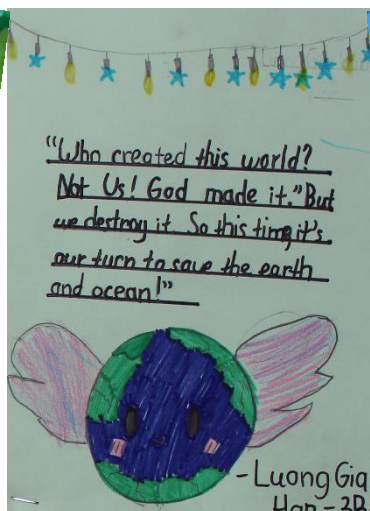 "Who created this world?
Not Us! God made it." But
we destroy it. So this time it's
our turn to save the earth
and ocean!"
- Luong Gia
Han - 3B